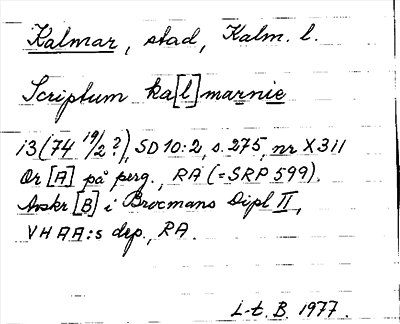 Kalmar, stad, Kalm. l.
Scriptum ka[l]marnie
13(74 19/2 ?), SD 10:2, s. 275, nr X 311
Or [A] på perg., RA (=SRP 599).
Avskr [B] i Brocmans Dipl II,
VHAA:s dep., RA.
L-t. B. 1977.